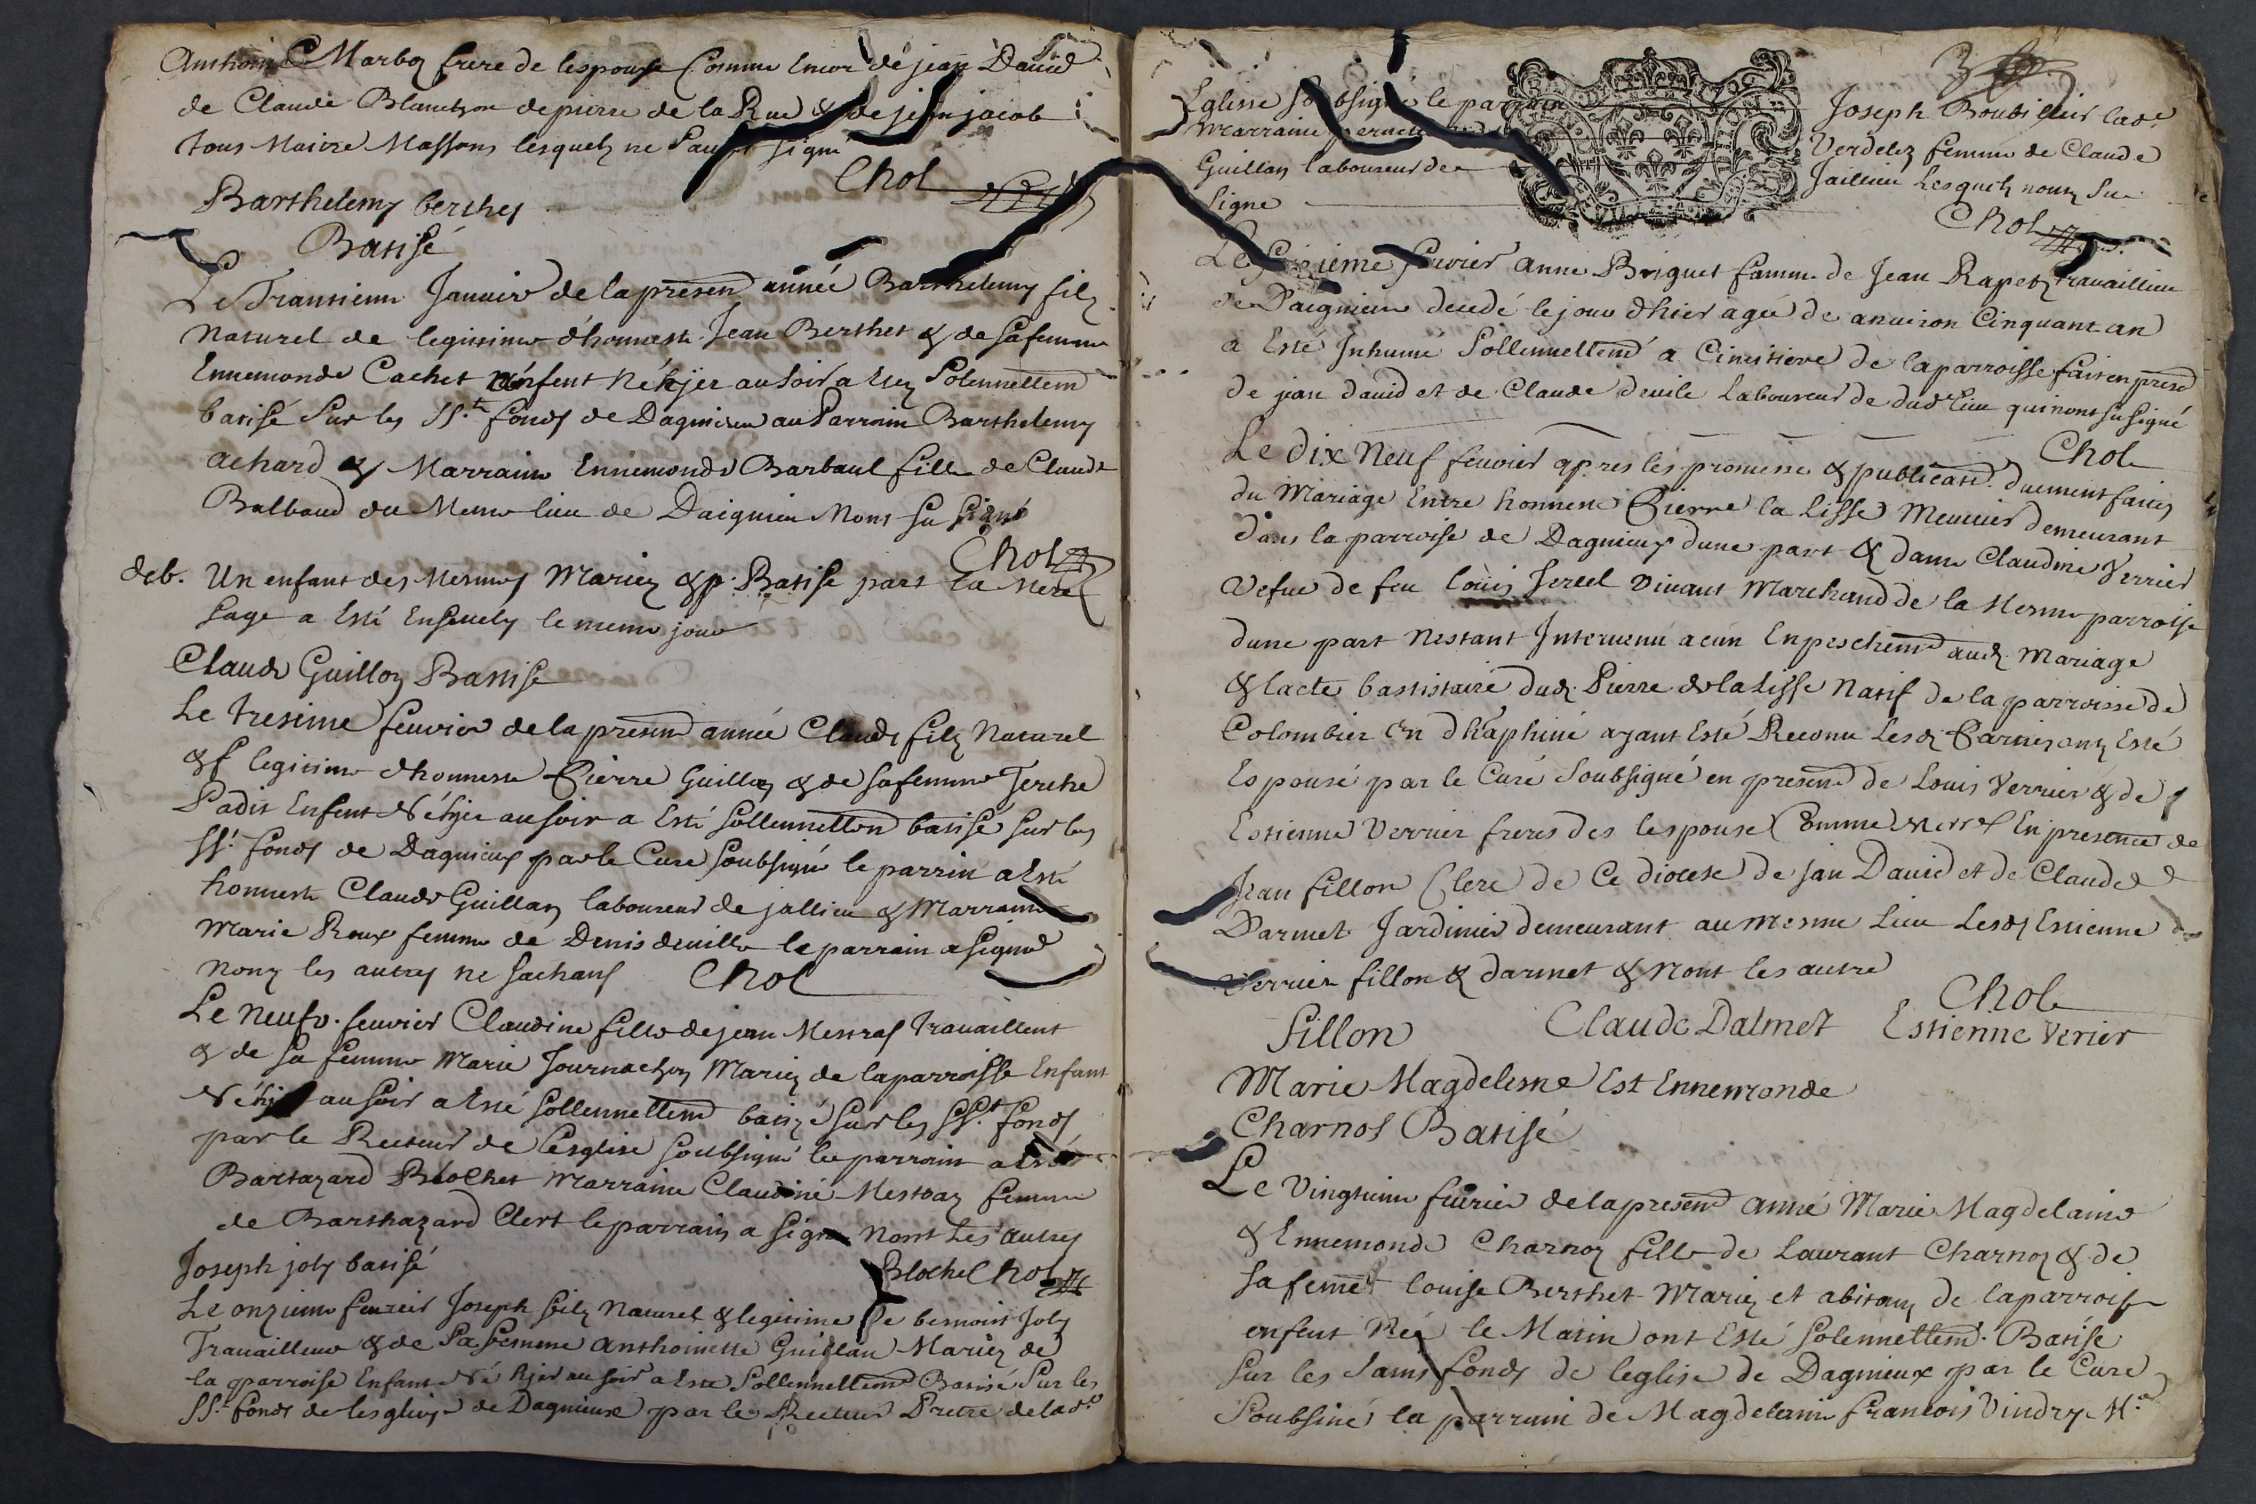 Anthoine Marboz frere de lespouse Comme Encor de jean David
de Claude Blanchon de pierre de la Rue & de jean jacob
tous Maitre Massons lesquelz ne Savent signé
Chol
Barthelemy berthet
Batisé
Le Trantieme Janvier de la presend année Barthelemy filz
Naturel de legitime d'honneste Jean Berthet & de sa femme
Ennemonde Cachet enfent né hjer au soir a Estez Solennellemd
batisé Sur les SS.t fonds de Dagnieu au Parrain Barthelemy
achard & Marraine Ennemonde Barbaul fille de Claude
Balbaud du Meme lieu de Daignieu Nont su signé
Chol
deb. Un enfant des Mesmes Mariez & p. Batise part la Mere
sage a Esté Ensevely le meme jour
Claude Guilloz Batise
Le tresime fevrier de la presend année Claude filz Naturel
& legitime d'honneste Pierre Guilloz & de sa femme
Ladit Enfent Né hjer au soir a Esté sollennellem batisé sur les
SS.t fonds de Dagnieux par le Cure soubsigné le parrin a Esté
honneste Claude Guillaz laboureur de jallieu & Marraine
Marie Roux femme de Denis deville le parrain a signé
Nonz les autres ne sachans Chol
Le Neufv. fevrier Claudine fille de jean Mestral travaillent
& de sa femme Marie Journachon Mariez de la parroisse Enfant
Né hjer au soir a Esté sollennellemd batizé sur les SS.t fonds
par le Recteur de lesglise soubsigné le parrain a Esté
Bartazard Blochet Marraine Claudine Mestraz femme
de Barthazard Clert le parrain a signé Nont les autres
Joseph joly batisé
Blochet Chol
Le onzieme fevreir Joseph filz Naturel & legitime de benoist Joly
Travailleur & de Sa femme anthoinette Guillau Mariez de
la parroise Enfant Né hjer au soir a Esté Sollennellemd Batisé Sur les
SS.t fonds de lesglise de Dagnieux par le Recteur Pretre de lad.e
3
Eglise soubsigné le parrain Joseph Boubillier lad.e
Marraine Verdelez femme de Claude
Guillaz laboureur de Jaillieu Lesquelz nonz Su
signe
Chol
Le seizieme fevrier anne Briguet famme de Jean Rapetz travaillieu
de Daignieu decedé le jour d'hier agée de anviron Cinquant an
a Esté Inhumé Sollennellemd a Cimitiere de la parroisse fait en presend
de jean david et de Claude devile Laboureur de dud lieu qui nont su signé
Chol
Le dix Neuf fevrier apres les promesse & publicatd duement faites
du Mariage Entre honneste Pierre la Lisse Meunier demeurant
dans la parroise de Dagnieux dune part & dame Claudine Verrier
Vefue de feu Louis Vivant Marchand de la Mesme parroise
dune part Nestant Intervenu acun Enpeschemd aud. Mariage
& lacte bastistaire dud. Pierre de la Lisse Natif de la parroisse de
Colombier En dhaphiné ayant Esté Reconu Lesd Parties ont Esté
Espousé par le Curé Soubsigné en presend de Louis Verrier & de
Estienne Verrier freres des lespouse Comme En presence de
Jean fillon Clerc de Ce diocese de jan David et de Claude
Darmet Jardinier demeurant au mesme Lieu Lesd Estienne
Verrier fillon & darmet & Nont les autre
Chol
fillon Claude Dalmet Estienne Verier
Marie Magdelesne Est Ennemonde
Charnos Batisé
Le Vingtieme fevrier de la presend année Marie Magdelaine
& Ennemonde Charnoz fille de Laurant Charnoz & de
sa femet louise Berthet Mariez et abitanz de la parroise
enfent Néz le Matin ont Esté solennellemd. Batise
sur les Sains fonds de leglise de Dagnieux par le Cure
Soubsiné le parrain de Magdelaine francois Vindry M.e